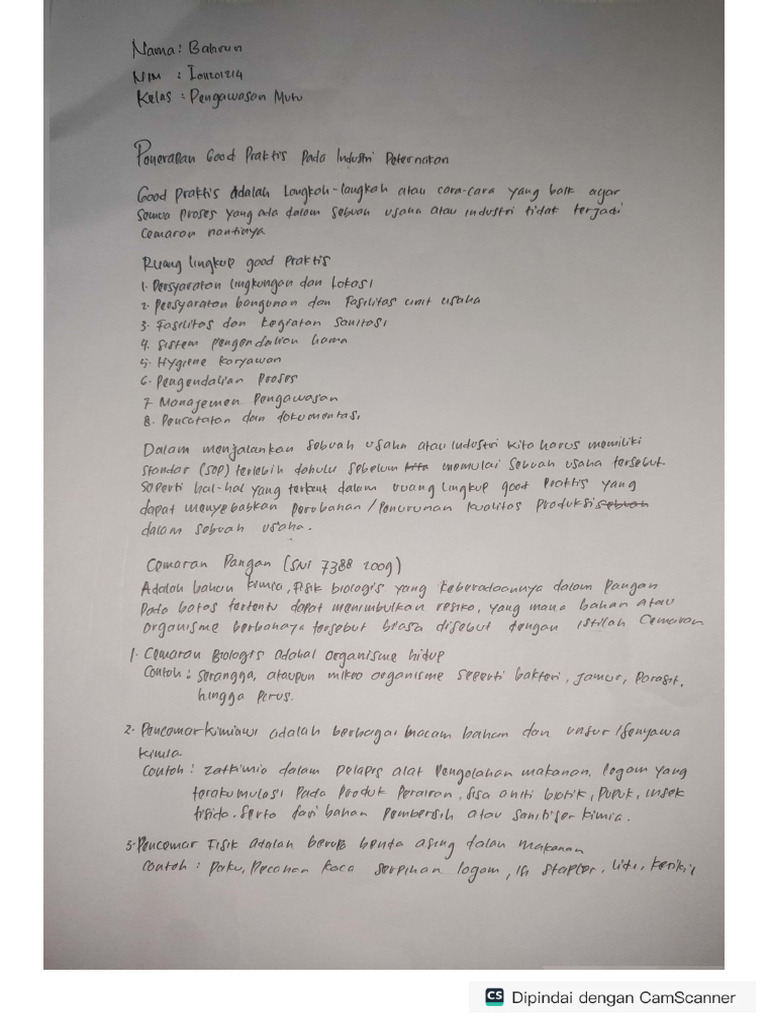 Nama : Bahrun
NIM : I011201214
Kelas : Pengawasan Mutu
Penerapan Good Praktis Pada Industri Peternakan
Good praktis adalah Langkah-langkah atau cara-cara yang baik agar
semua proses yang ada dalam sebuah usaha atau industri tidak terjadi
cemaran nantinya
Ruang lingkup good praktis
1. Persyaratan lingkungan dan Lokasi
2. Persyaratan bangunan dan Fasilitas unit usaha
3. Fasilitas dan kegiatan sanitasi
4. Sistem pengendalian hama
5. Hygiene karyawan
6. Pengendalian Proses
7. Manajemen Pengawasan
8. Pencatatan dan dokumentasi
Dalam menjalankan sebuah usaha atau Industri kita harus memiliki
standar (SOP) terlebih dahulu sebelum kita memulai sebuah usaha tersebut.
seperti hal-hal yang terkait dalam ruang lingkup good praktis yang
dapat menyebabkan perubahan / Penurunan kualitas produksi sebuah
dalam sebuah usaha.
Cemaran Pangan (SNI 7388 2009)
Adalah bahan kimia, Fisik biologis yang keberadaannya dalam Pangan
Pada batas tertentu dapat menimbulkan resiko, yang mana bahan atau
organisme berbahaya tersebut biasa disebut dengan istilah Cemaran
1. Cemaran Biologis adalah organisme hidup
Contoh : serangga, ataupun mikro organisme seperti bakteri, Jamur, Parasit,
hingga Pirus.
2. Pencemar kimiawi adalah berbagai macam bahan dan unsur / senyawa
kimia.
Contoh : zat kimia dalam Pelapis alat Pengolahan makanan, logam yang
terakumulasi Pada Produk Perairan, sisa antibiotik, Pupuk, insek
tisida. Serta dari bahan Pembersih atau sanitiser kimia.
3. Pencemar Fisik adalah berupa benda asing dalam makanan
contoh : Paku, Pecahan kaca serpihan logam, isi stapler, lidi, kerikil
CS Dipindai dengan CamScanner